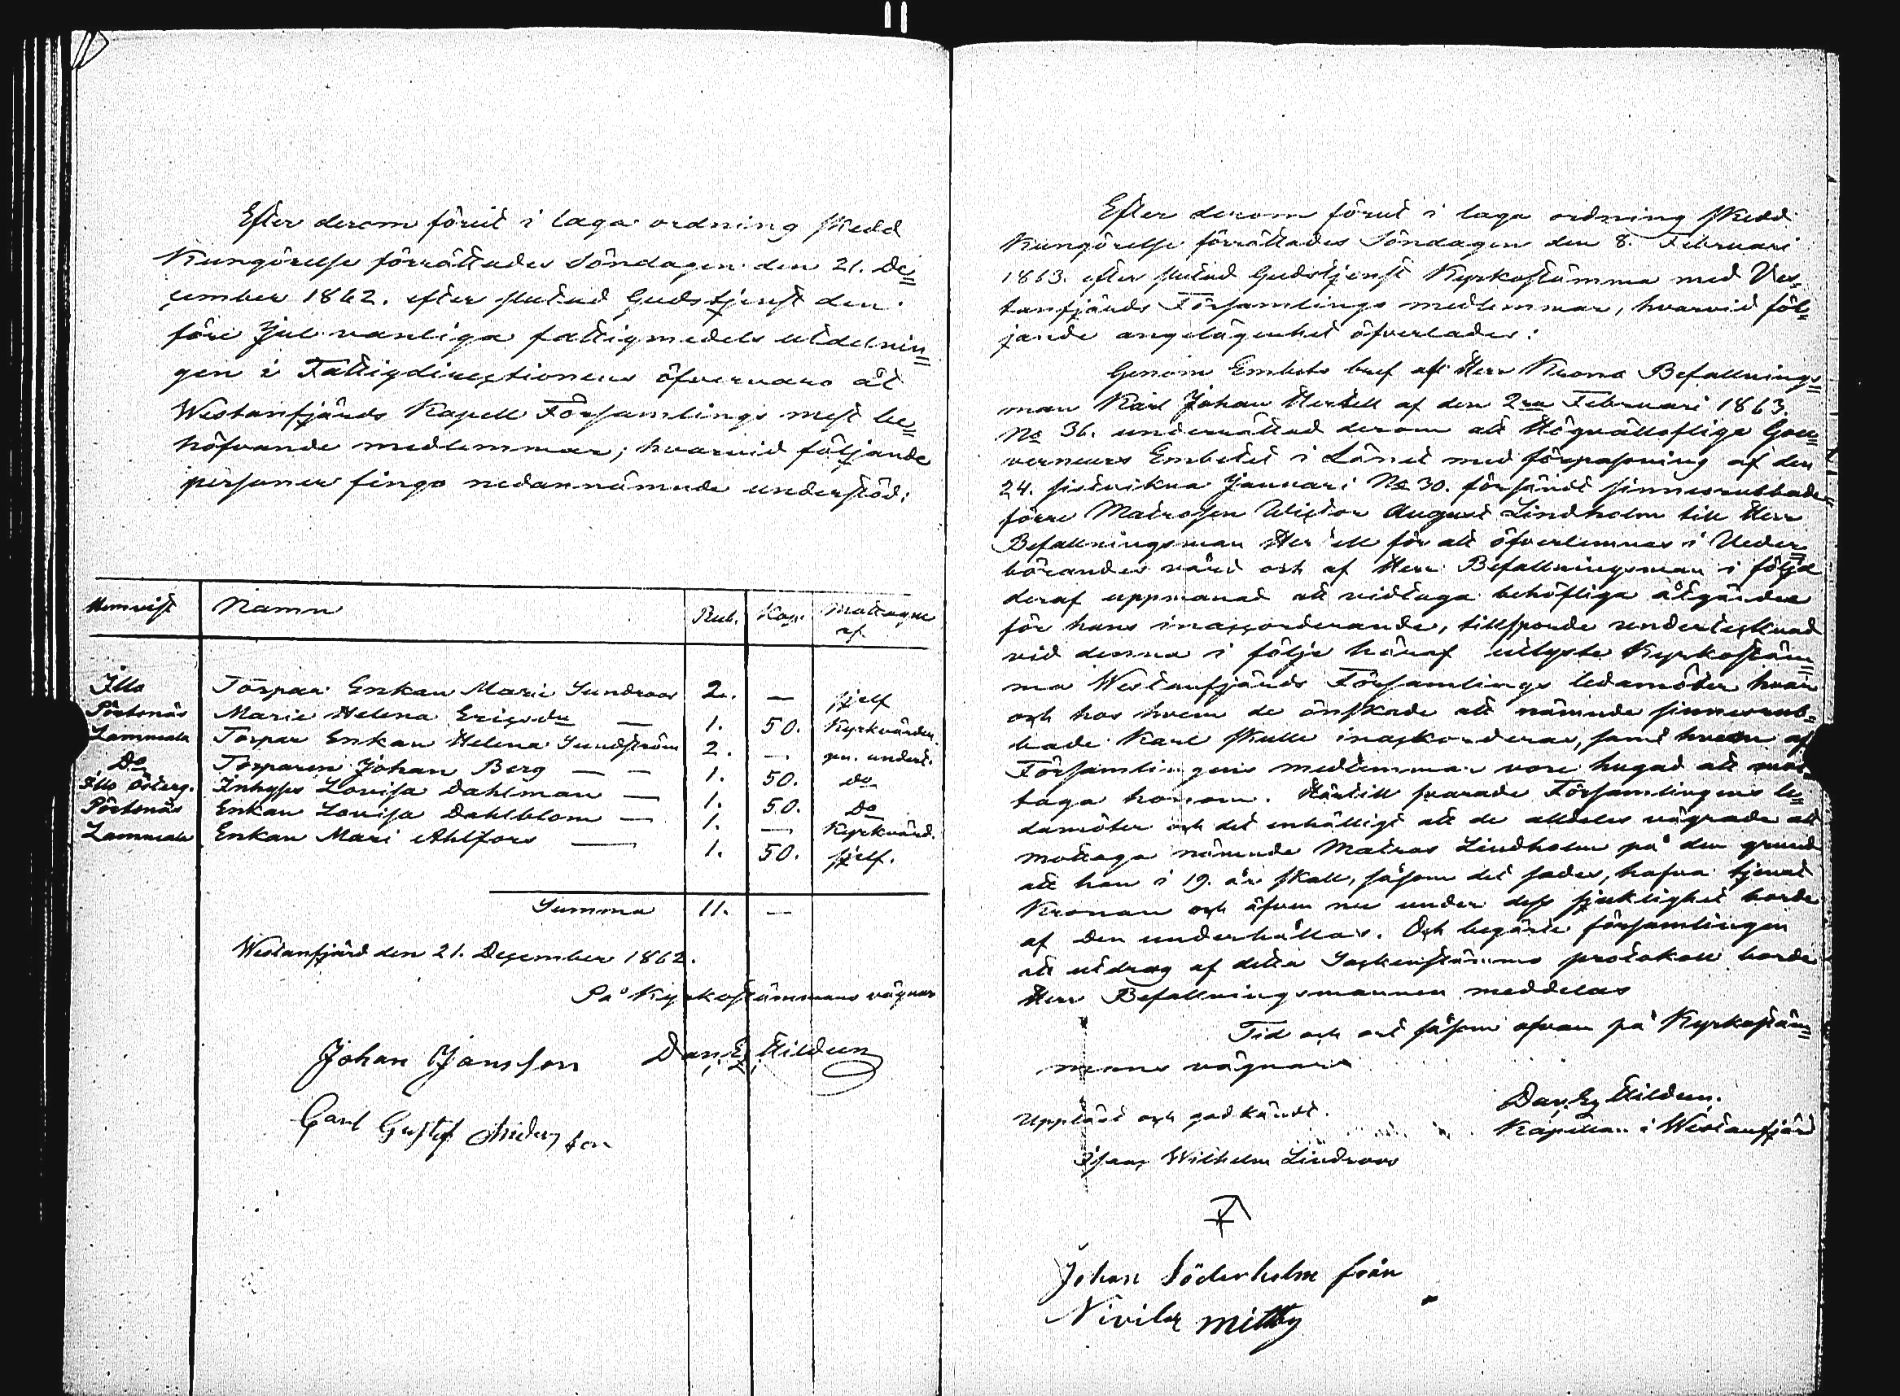 Efter derom förut i laga ordning skedd
Kungörelse förrättades Söndagen den 21. De=
cember 1862. efter slutad Gudstjenst den
före Jul vanliga fattigmedels utdelnin=
gen i Fattigdirectionens öfvervaro åt
Westanfjärds Kapell Församlings mest be=
höfvande medlemmar; hvarvid följande
personer fingo nedannämnde understöd:
Hemvist Namn Rub. Kop. Mottagne af
Illo Torpar Enkan Maria Sundroos 2. — sjelf
Pörtsnäs Maria Helena Ericsdr — 1. 50. Kyrkvärden
Lammala Torpar Enkan Helena Sundström 2. — gm. undert.
Do Torparen Johan Berg — — 1. 50. do
Illo Österg. Inhyses Lovisa Dahlman — 1. 50. Do
Pörtsnäs Enkan Lovisa Dahlblom — 1. — Kyrkvärd.
Lammala Enkan Mari Ahlfors — 1. 50. sjelf.
Summa 11. —
Westanfjärd den 21. December 1862.
På Kyrkostämmans vägnar
Johan Jansson Dan. Ez. Hildeen
Carl Gustaf Anderson
Efter derom förut i laga ordning skedd
Kungörelse förrättades Söndagen den 8. Februari
1863. efter slutad Gudstjenst Kyrkostämma med Ves=
tanfjärds Församlings medlemmar, hvarvid föl=
jande angelägenhet öfverlades:
Genom Embets bref af Herr Krono Befallnings=
man Karl Johan Hertell af den 2ra Februari 1863.
No 36. underrättad derom att Högvällofliga Gou=
verneurs Embetet i Länet med förpassning af den
24. sistvikna Januari No 30. försändt sinnesrubbade
förre Matrosen Victor August Lindholm till Herr
Befallningsman Hertell för att öfverlemnas i Veder=
börandes vård och af Herr Befallningsman i följd
deraf uppmanad att vidtaga behöfliga åtgärder
för hans inaccorderande, tillsporde undertecknad
vid denna i följe häraf utlyste Kyrkostäm=
ma Westanfjärds Församlings ledamöter hvar
och hos hvem de önskade att nämnde sinnesrub=
bade Karl skulle inackorderas, samt hvem af
Församlingens medlemmar vore hugad att mot
taga honom. Härtill svarade Församlingens le=
damöter och det enhälligt att de alldeles vägrade att
mottaga nämnde Matros Lindholm på den grund
att han i 19. år skall, såsom det sades, hafva tjenat
Kronan och äfven nu under dess sjuklighet borde
af den underhållas. Och begärte församlingen
att utdrag af detta Sockenstämmo protokoll borde
Herr Befallningsmannen meddelas
Tid och ort såsom ofvan på Kyrkostäm=
mans vägnar
Dan. Ez. Hildeen.
Kapellan i Westanfjärd
Uppläst och godkändt.
Isaac Wilhelm Lindroos
Johan Söderholm från
Nivilax mittby